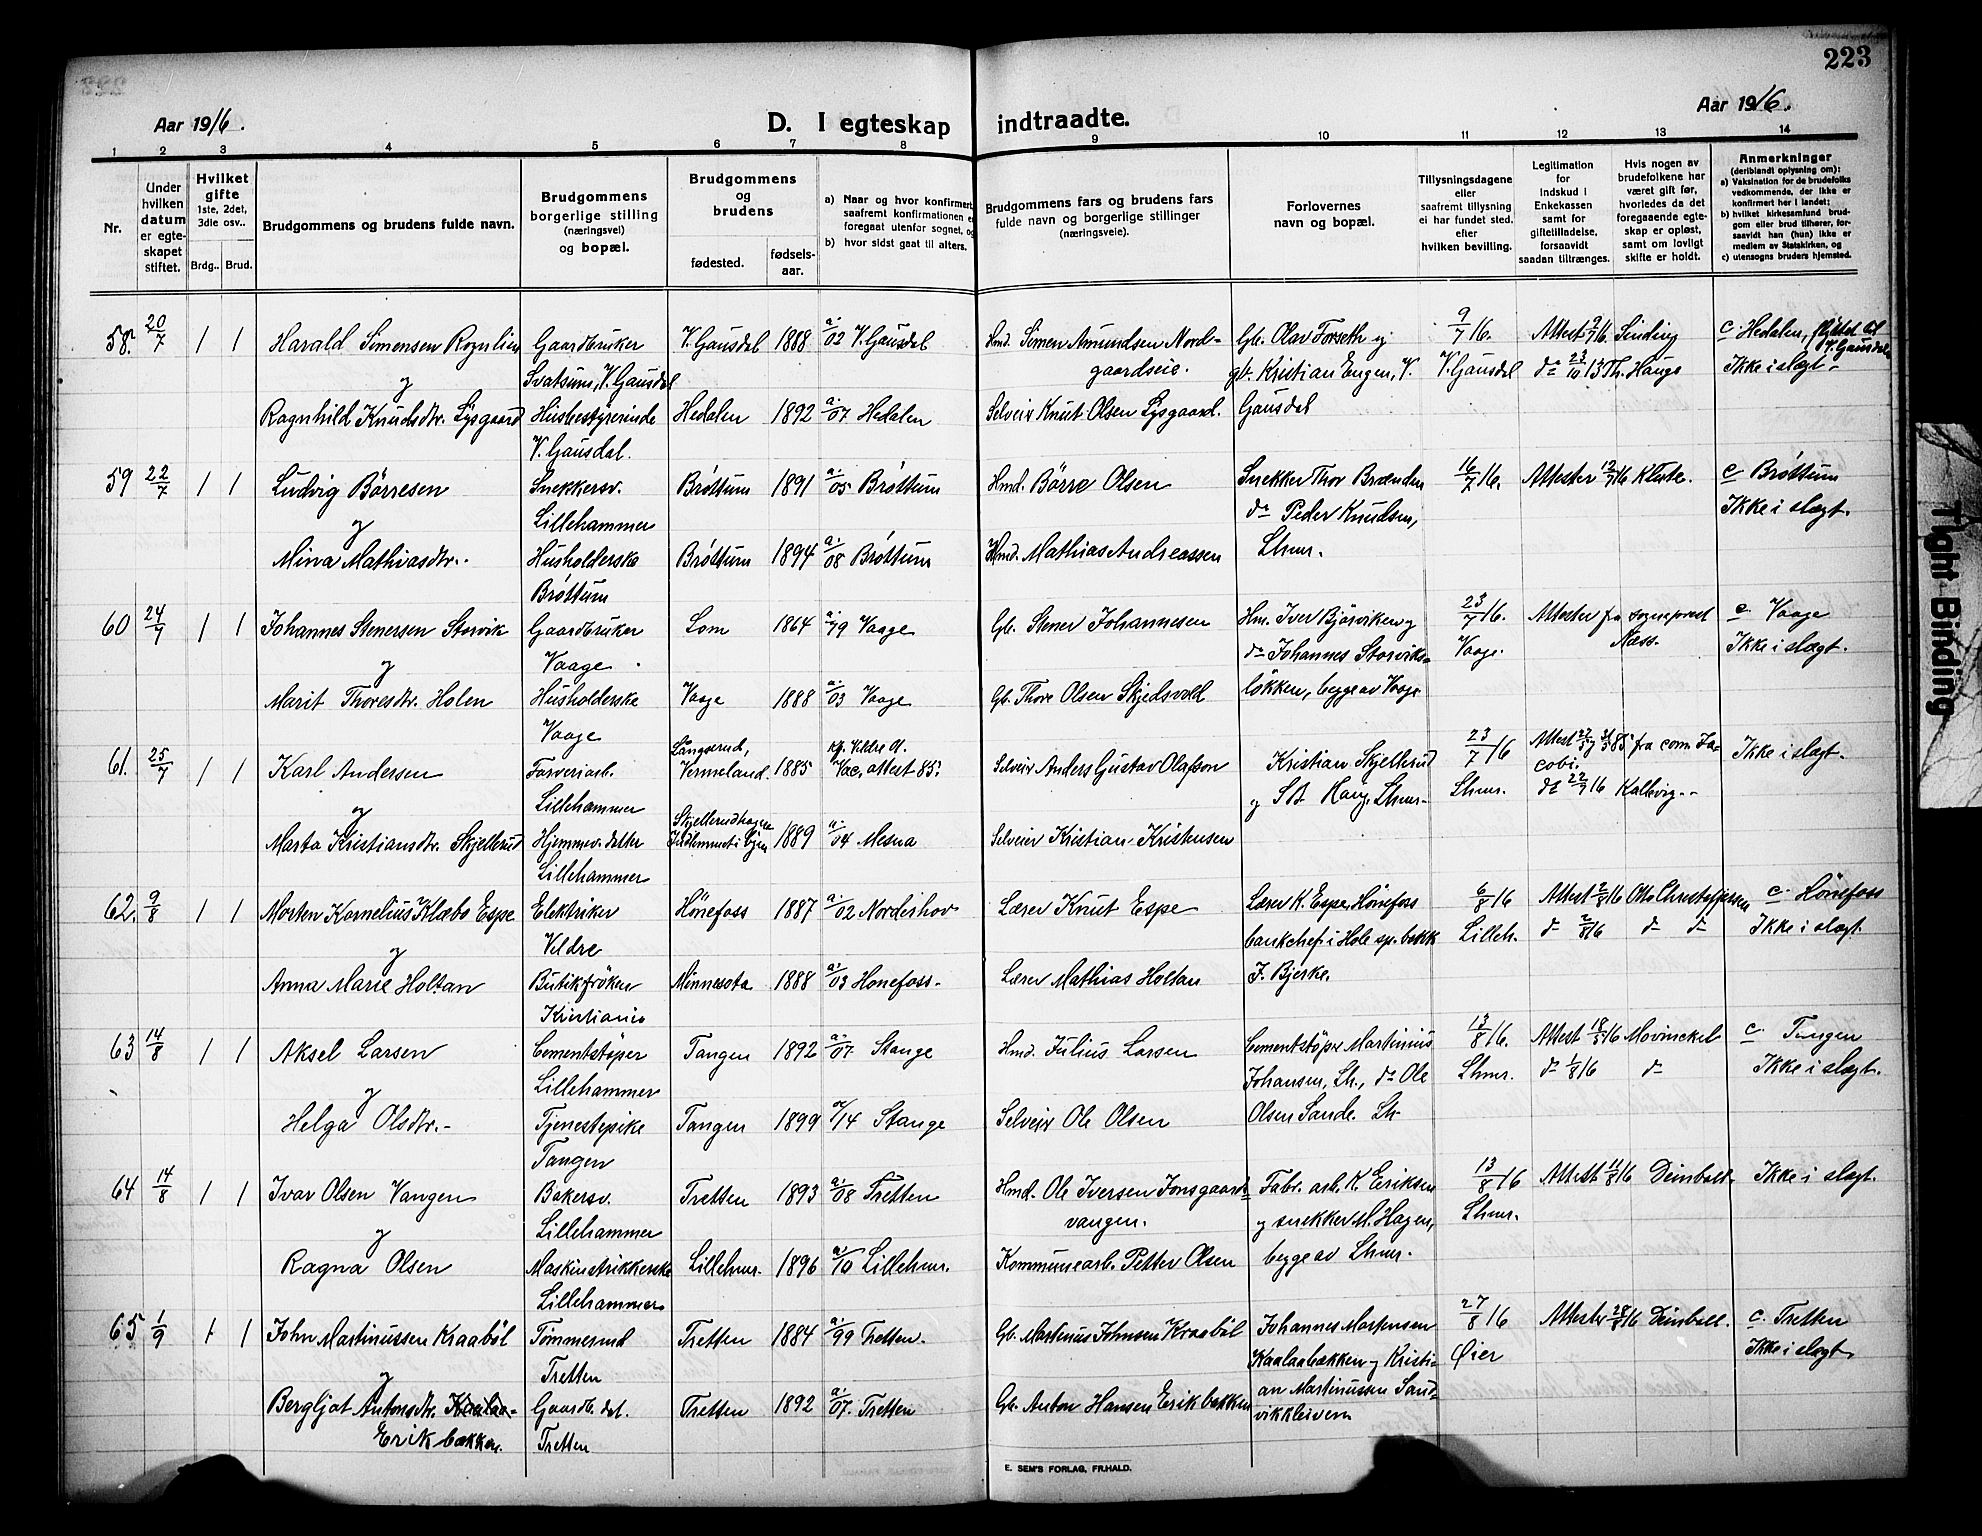 223
Aar 1916.
D. I egteskap indtraadte.
Aar 1916.
1 2 3 4 5 6 7 8 9 10 11 12 13 14
Nr.
Under hvilken datum er egteskapet stiftet.
Hvilket gifte 1ste, 2det, 3die osv..
Brdg.. Brud.
Brudgommens og brudens fulde navn.
Brudgommens borgerlige stilling (næringsvei) og bopæl.
Brudgommens og brudens
fødested.
fødsels-aar.
a) Naar og hvor konfirmert, saafremt konfirmationen er foregaat utenfor sognet, og
b) hvor sidst gaat til alters.
Brudgommens fars og brudens fars fulde navn og borgerlige stillinger (næringsveie).
Forlovernes navn og bopæl.
Tillysningsdagene eller saafremt tillysning ei har fundet sted. efter hvilken bevilling.
Legitimation for Indskud i Enkekassen samt for giftetilladelse, forsaavidt saadan tiltrænges.
Hvis nogen av brudefolkene har været gift før, hvorledes da det foregaaende egteskap er opløst, samt om lovligt skifte er holdt.
Anmerkninger (deriblandt oplysning om):
a) Vaksination for de brudefolks vedkommende, der ikke er konfirmert her i landet;
b) hvilket kirkesamfund brudgom eller brud tilhører, forsaavidt han (hun) ikke er medlem av Statskirken, og
c) utensogns bruders hjemsted.
58. 20/7 1 1 Harald Simensen Rognlien Gaardbruker V. Gausdal 1888 a. 02 V. Gausdal Hmd. Simen Amundsen Nord- Gb. Olav Forseth og 9/7 16. Attest 9/7 16 Sinding c Hedalen, flyttet til V. Gausdal
og Svatsum, V. Gausdal gaardseie. gb. Kristian Engen, V. V. Gausdal do 23/10 13 Th. Hauge Ikke i slægt.
Ragnhild Knudsdtr. Lysgaard Husbestyrerinde Hedalen 1892 a/07 Hedalen Selveier Knut Olsen Lysgaard. Gausdal
V. Gausdal.
59 22/7 1 1 Ludvig Börresen Snekkersv. Brøttum 1891 a/05 Brøttum Hmd. Börre Olsen Snekker Thor Brænden 16/7 16. Attester 12/7 16 c Brøttum
og Lillehammer do Peder Knudsen, Ikke i slægt.
Mina Mathiasdtr. Husholderske Brøttum 1894 a/08 Brøttum Hmd. Mathias Andreassen Lhmr.
Brøttum
60 24/7 1 1 Johannes Stenersen Storvik Gaardbruker Lom 1864 a/79 Vaage Gb. Stener Johannesen Hm. Iver Bjørviken og 23/7 16. Attester fra sogneprest c Vaage
og Vaage do Johannes Storviks- Vaage. Næss. Ikke i slægt.
Marit Thoresdtr. Holen Husholderske Vaage 1888 a/03 Vaage Gb. Thore Olsen Skjedsvold løkken, begge av Vaage
Vaage
61. 25/7 1 1 Karl Andersen Farveriarb. Långserud, Vermeland. 1885 Vac. attest 85. Selveier Anders Gustav Olafson Kristian Skjellerud 23/7 16 fra com. Jacobi. Ikke i slægt.
og Lillehammer og S B Haug, Lhmr. Lhmr. do 22/7 16 Kallevig.
Marta Kristiansdtr. Skjellerud Hjemmev. datter 1889 a/04 Mesna Selveier Kristian Kristensen
Lillehammer
62. 9/8 1 1 Morten Kornelius Klæbo Espe Elektriker Hönefoss 1887 a/02 Norderhov Lærer Knut Espe Lærer K. Espe, Hönefoss 6/8 16 Attest 2/8 16 Otto Christoffersen c. Hönefoss
og Veldre bankchef i Hole sp. bank Lilleh. do 2/8 16 do do Ikke i slægt.
Anna Marie Holtan Butikfröken Minnesota 1888 a/03 Honefoss. Lærer Mathias Holtan J. Bjerke.
Kristiania
63 14/8 1 1 Aksel Larsen Cementstøper Tangen 1892 a/07. Stange Hmd. Julius Larsen Cementstøper Martinius 13/8 16. Attest 18/5 16 Movinckel c. Tangen
og Lillehammer Johansen, Lh., do Ole Lhmr. do 1/8 16 do Ikke i slægt.
Helga Olsdtr. Tjenestepike Tangen 1899 a/14 Stange Selveier Ole Olsen Olsen Sande. Lh
Tangen
64 14/8 1 1 Ivar Olsen Vangen Bakersv. Tretten 1893 a/08 Tretten Hmd. Ole Iversen Jonsgaard- Fabr. arb. K. Eriksen 13/8 16 Attest 11/8 16 Deinboll. Ikke i slægt.
og Lillehammer vangen. og snekker M. Hagen, Lhmr.
Ragna Olsen Maskinstrikkerske Lillehmr. 1896 a/10 Lillehmr. Kommunearb. Petter Olsen begge av Lhmr.
Lillehammer
65 1/9 1 1 John Martinussen Kraabøl Tømmermd Tretten 1884 a/99 Tretten. Gb. Martinus Johnsen Kraabøl Johannes Mortensen 27/8 16 Attester 28/8 16 Deinboll. c. Tretten
og Tretten Kaalaabækken og Kristi- Øier Ikke i slægt.
Bergljot Antonsdtr. Gaardb. dat. Tretten 1892 a/07. Tretten Gb. Anton Hansen Erikbakken an Martinussen Sand-
Erikbakken. Tretten vikkleiven
E. SEM'S FORLAG, FR.HALD.
Tight Binding